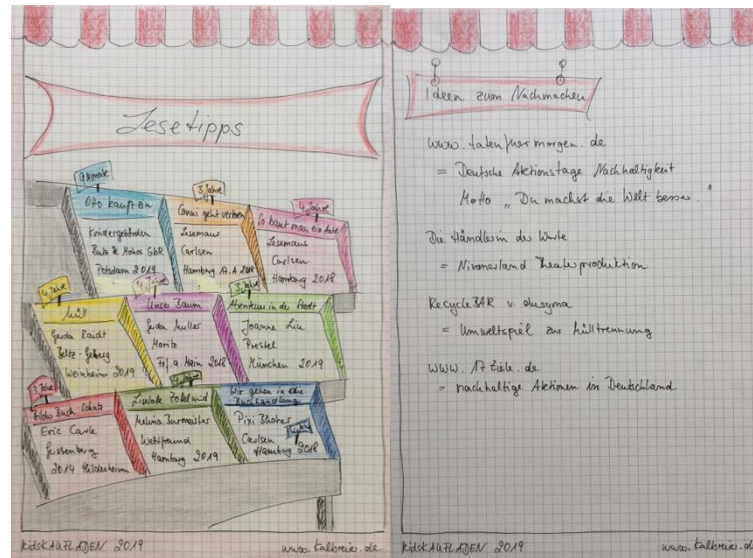 Lesetipps
9 Monate
Otto kauft ein
Kindergebärden
Butz & Mohos GbR
Potsdam 2019
3 Jahre
Conni geht
Lesemaus
Carlsen
Hamburg 2018
4 Jahre
So baut man ein Auto
Lesemaus
Carlsen
Hamburg 2018
4 Jahre
Müll
Gerda Raidt
Beltz & Gelberg
Weinheim 2019
4 Jahre
Unser Baum
Gerda Muller
Moritz
Frf. a. Main 2018
3 Jahre
Abenteuer in der Stadt
Joanne Liu
Prestel
München 2019
3 Jahre
Bilder Buch Schatz
Eric Carle
Gerstenberg
2014 Hildesheim
Jahre
Liselotte
Melina Burmeister
Hamburg 2019
Wir gehen in die
Buchhandlung
Pixi Bücher
Carlsen
Hamburg 2018
kidsKAUFLADEN 2019
www.kalbreier.de
Ideen zum Nachmachen
www.tatenfuermorgen.de
= Deutsche Aktionstage Nachhaltigkeit
Motto „Du machst die Welt besser."
Die Händlerin der Worte
= Nimmerland Theaterproduktion
RecycleBAR v. elusyma
= Umweltspiel zur Mülltrennung
www.17Ziele.de
= nachhaltige Aktionen in Deutschland
kidsKAUFLADEN 2019
www.kalbreier.de